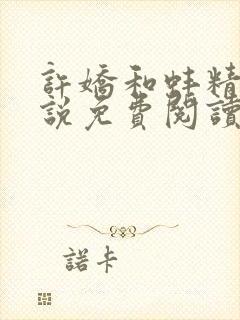 許嬌和蚌精
說免費閱讀
諾卡